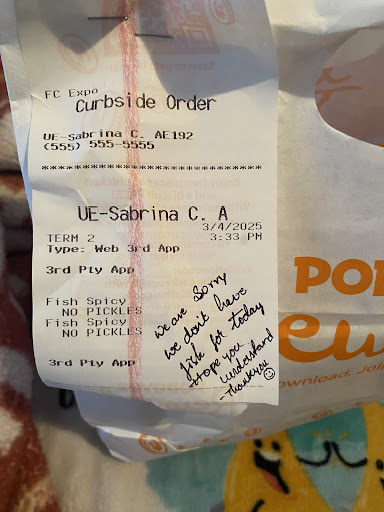 FC Expo
Curbside Order
UE-Sabrina C. AE192
(555) 555-5555
****************************************
UE-Sabrina C. A
3/4/2025
TERM 2 3:33 PM
Type: Web 3rd App
3rd Pty App
Fish Spicy
NO PICKLES
Fish Spicy
NO PICKLES
3rd Pty App
we are Sorry
we don't have
fish for today
Hope you
understand
-Thankyou ☺
POP
ownload. Joi